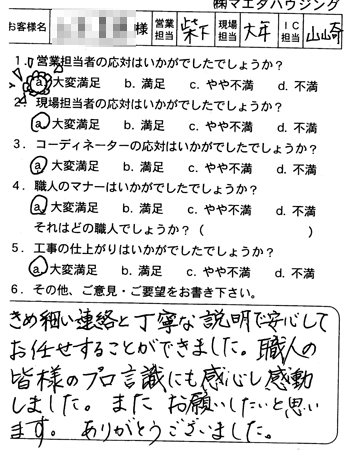 ㈱マエダハウジング
お客様名 様 営業担当 柴下 現場担当 大年 IC担当 山崎
1．営業担当者の応対はいかがでしたでしょうか？
a. 大変満足 b. 満足 c. やや不満 d. 不満
2．現場担当者の応対はいかがでしたでしょうか？
a. 大変満足 b. 満足 c. やや不満 d. 不満
3．コーディネーターの応対はいかがでしたでしょうか？
a. 大変満足 b. 満足 c. やや不満 d. 不満
4．職人のマナーはいかがでしたでしょうか？
a. 大変満足 b. 満足 c. やや不満 d. 不満
それはどの職人でしょうか？（ ）
5．工事の仕上がりはいかがでしたでしょうか？
a. 大変満足 b. 満足 c. やや不満 d. 不満
6．その他、ご意見・ご要望をお書き下さい。
きめ細い連絡と丁寧な説明で安心して
お任せすることができました。職人の
皆様のプロ意識にも感心し感動
しました。また お願いしたいと思い
ます。 ありがとうございました。